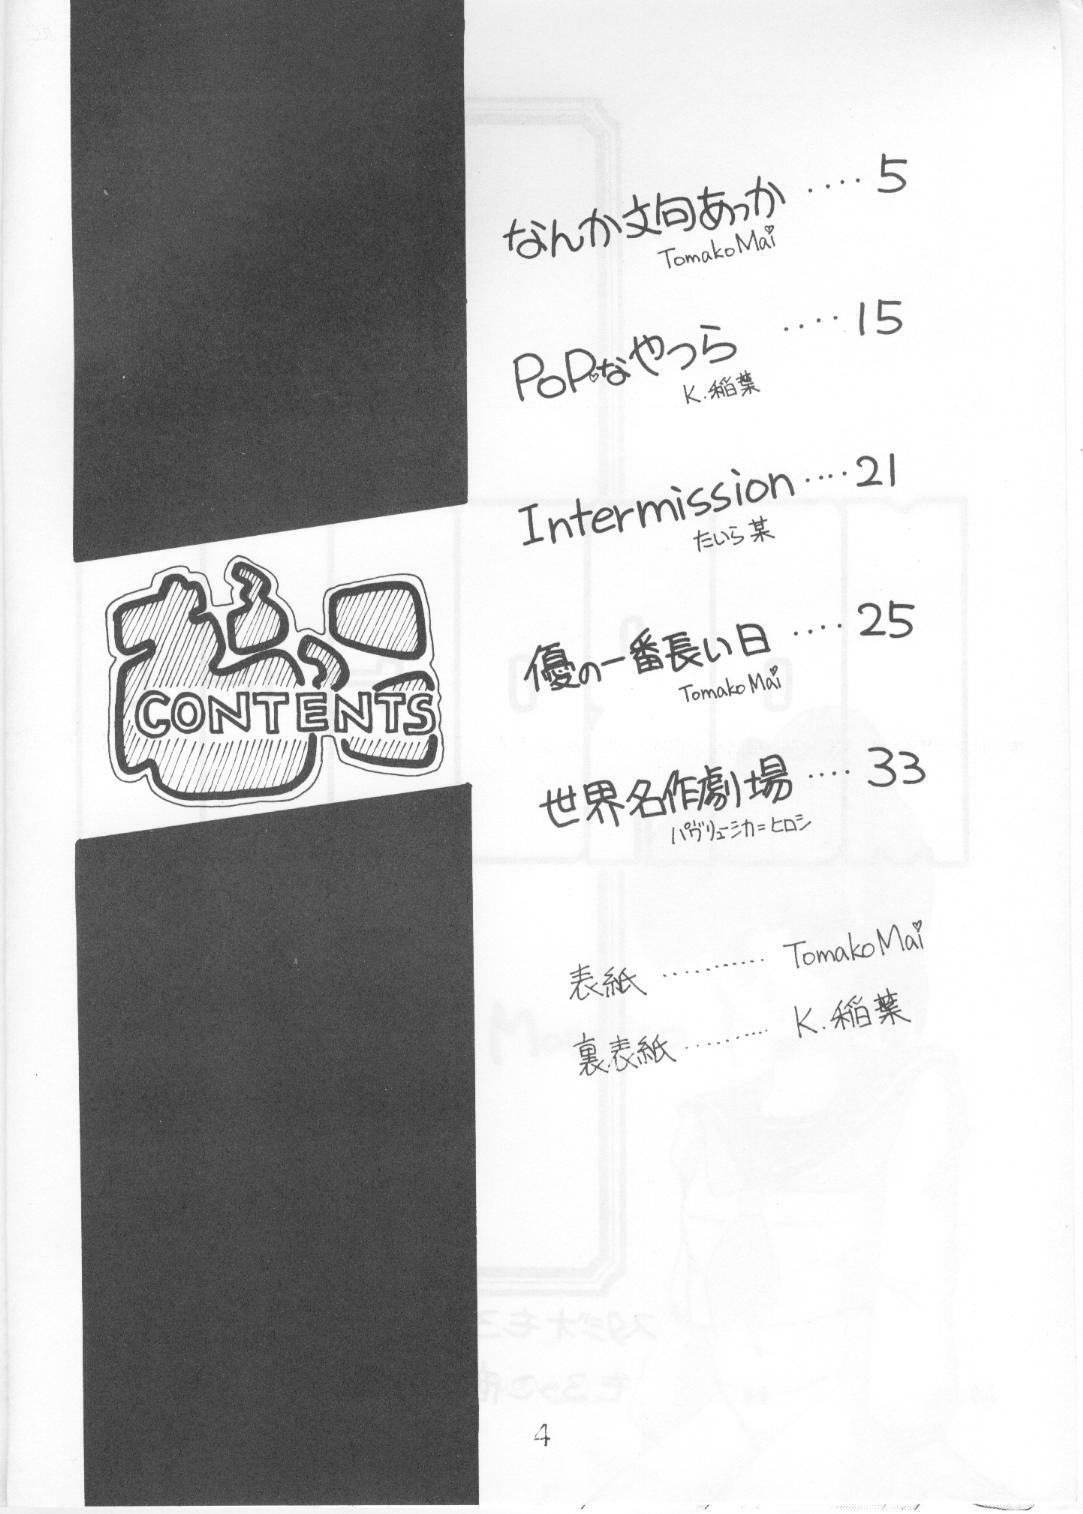 なんか文句あっか ････ 5
TomakoMai
PoPなやつら ････ 15
K.稲葉
Intermission ････ 21
たいら某
優の一番長い日 ････ 25
TomakoMai
世界名作劇場 ････ 33
パヴリューシカ=ヒロシ
CONTENTS
表紙 ･･････････ TomakoMai
裏表紙 ･････････ K.稲葉
4